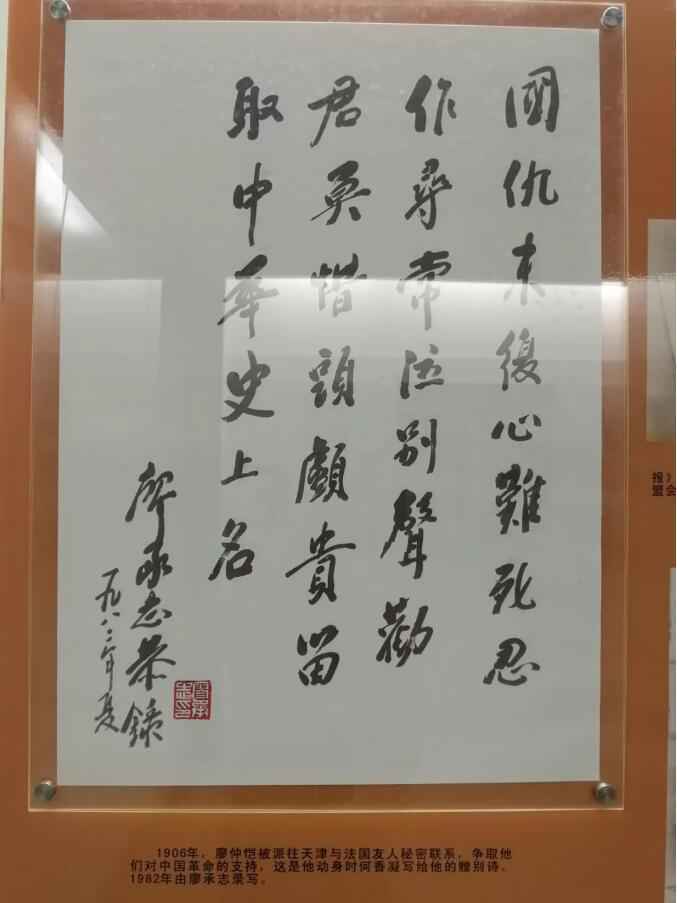 國仇未復心難死忍
作尋常泣别聲勸
君莫惜頭顱貴留
取中華史上名
廖承志恭錄
一九八二年夏
1906年，廖仲恺被派往天津与法国友人秘密联系，争取他
们对中国革命的支持，这是他动身时何香凝写给他的赠别诗。
1982年由廖承志录写。
报》
盟会